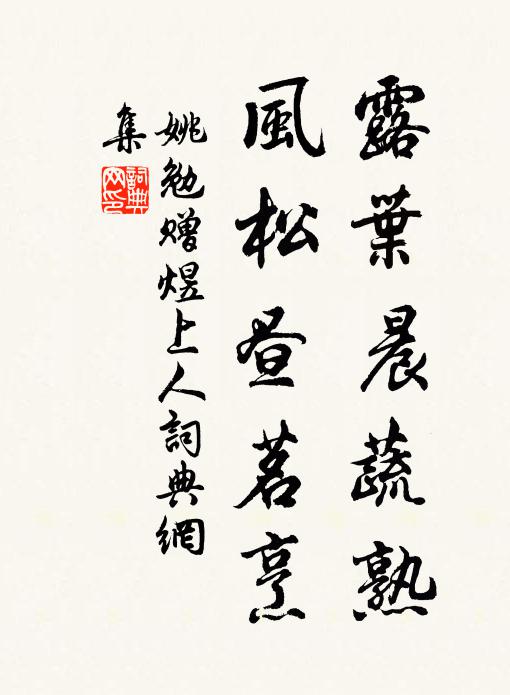 露葉晨蔬熟
風松昼茗烹
姚勉贈煜上人詞典網
集
詞典网印